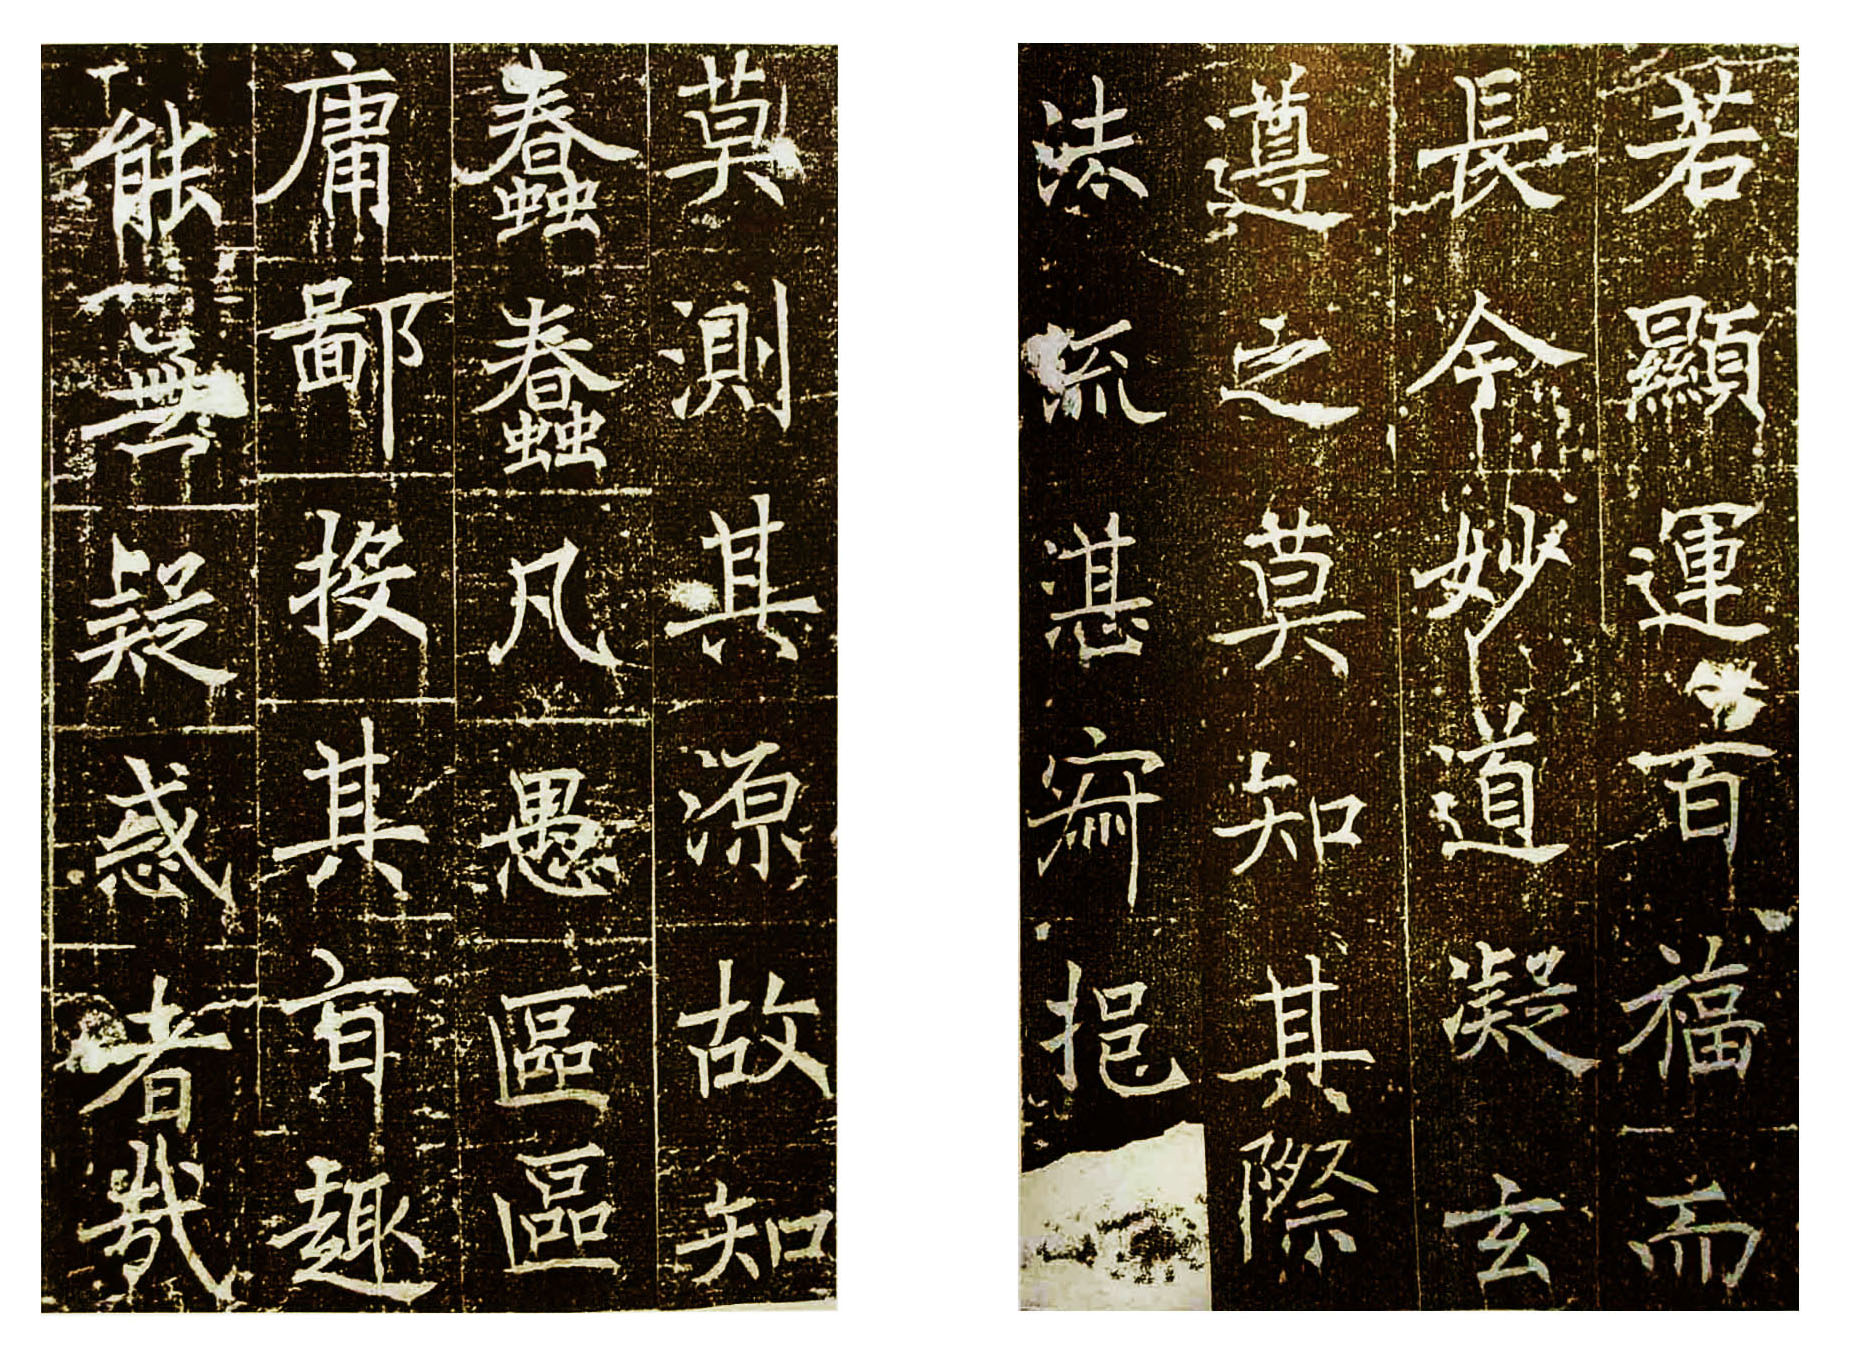 若顯運百福而
長今妙道凝玄
遵之莫知其際
法流湛寂挹之
莫測其源故知
蠢蠢凡愚區區
庸鄙投其旨趣
能無疑惑者哉